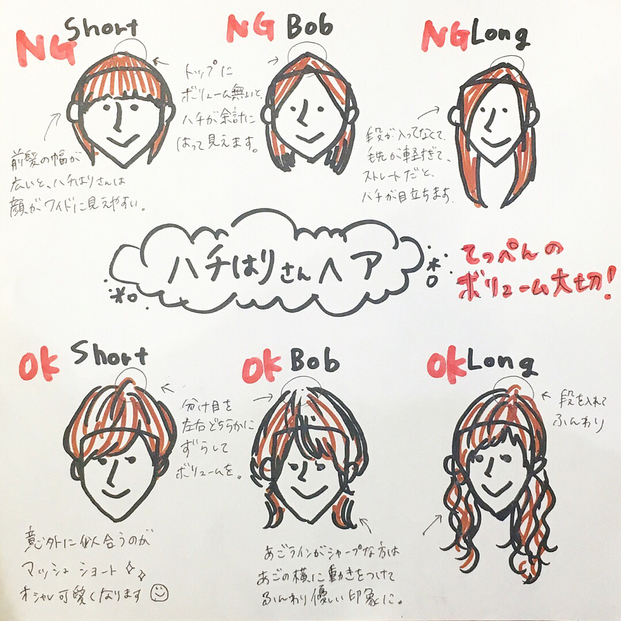 NG Short
前髪の幅が
広いと、ハチはりさんは
顔がワイドに見えやすい。
トップに
ボリューム無いと、
ハチが余計に
はって見えます。
NG Bob
NG Long
段が入ってなくて
毛先が軽すぎて、
ストレートだと、
ハチが目立ちます
ハチはりさんヘア
てっぺんの
ボリューム大切!
OK Short
分け目を
左右どちらかに
ずらして
ボリュームを。
意外に似合うのが
マッシュショート
オシャレ可愛くなります
OK Bob
あごラインがシャープな方は
あごの横に動きをつけて
ふんわり優しい印象に。
OK Long
段を入れて
ふんわり